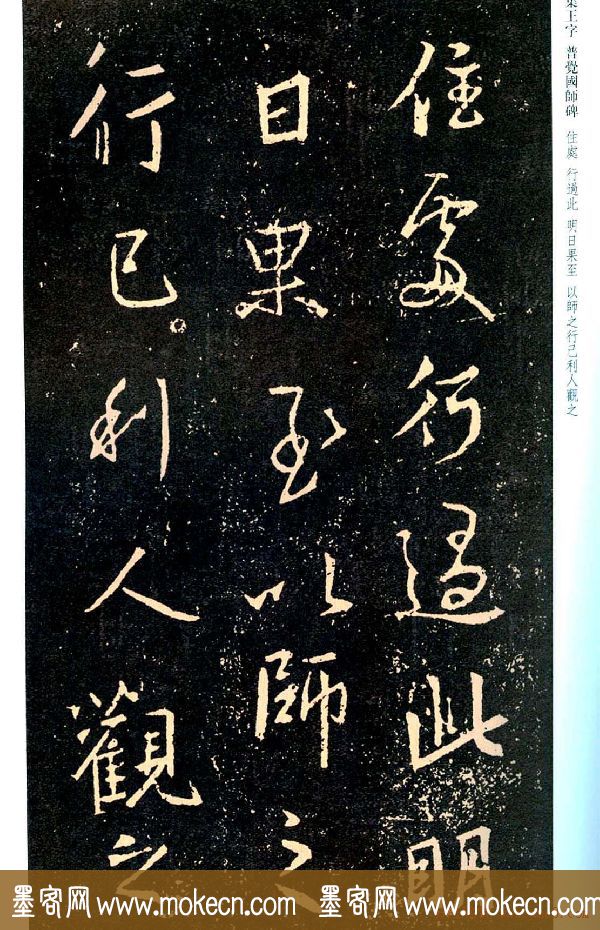 住處行過此明
日果至以師之
行已利人觀之
集王字 普覺國師碑 住處 行過此 明日果至 以師之行己利人觀之
墨客网 www.mokecn.com 墨客网 www.mokecn.com